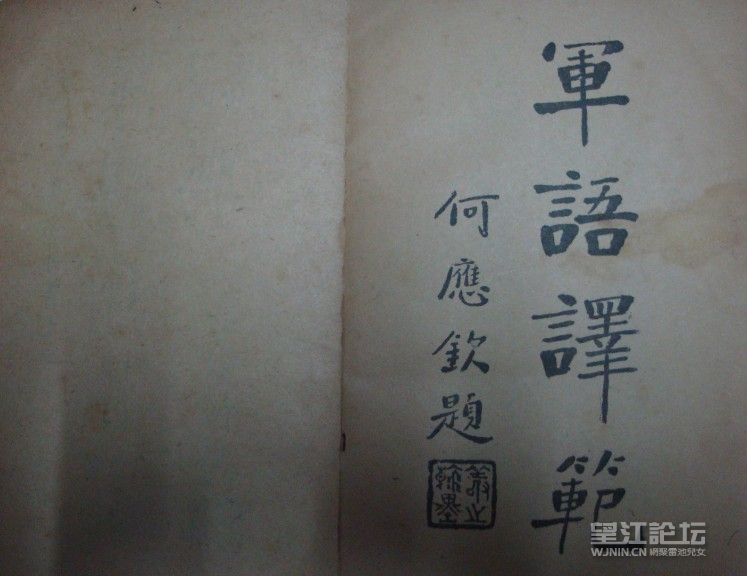 軍語譯範
何應欽題
望江論坛
WJNIN.CN 網聚雷池兒女